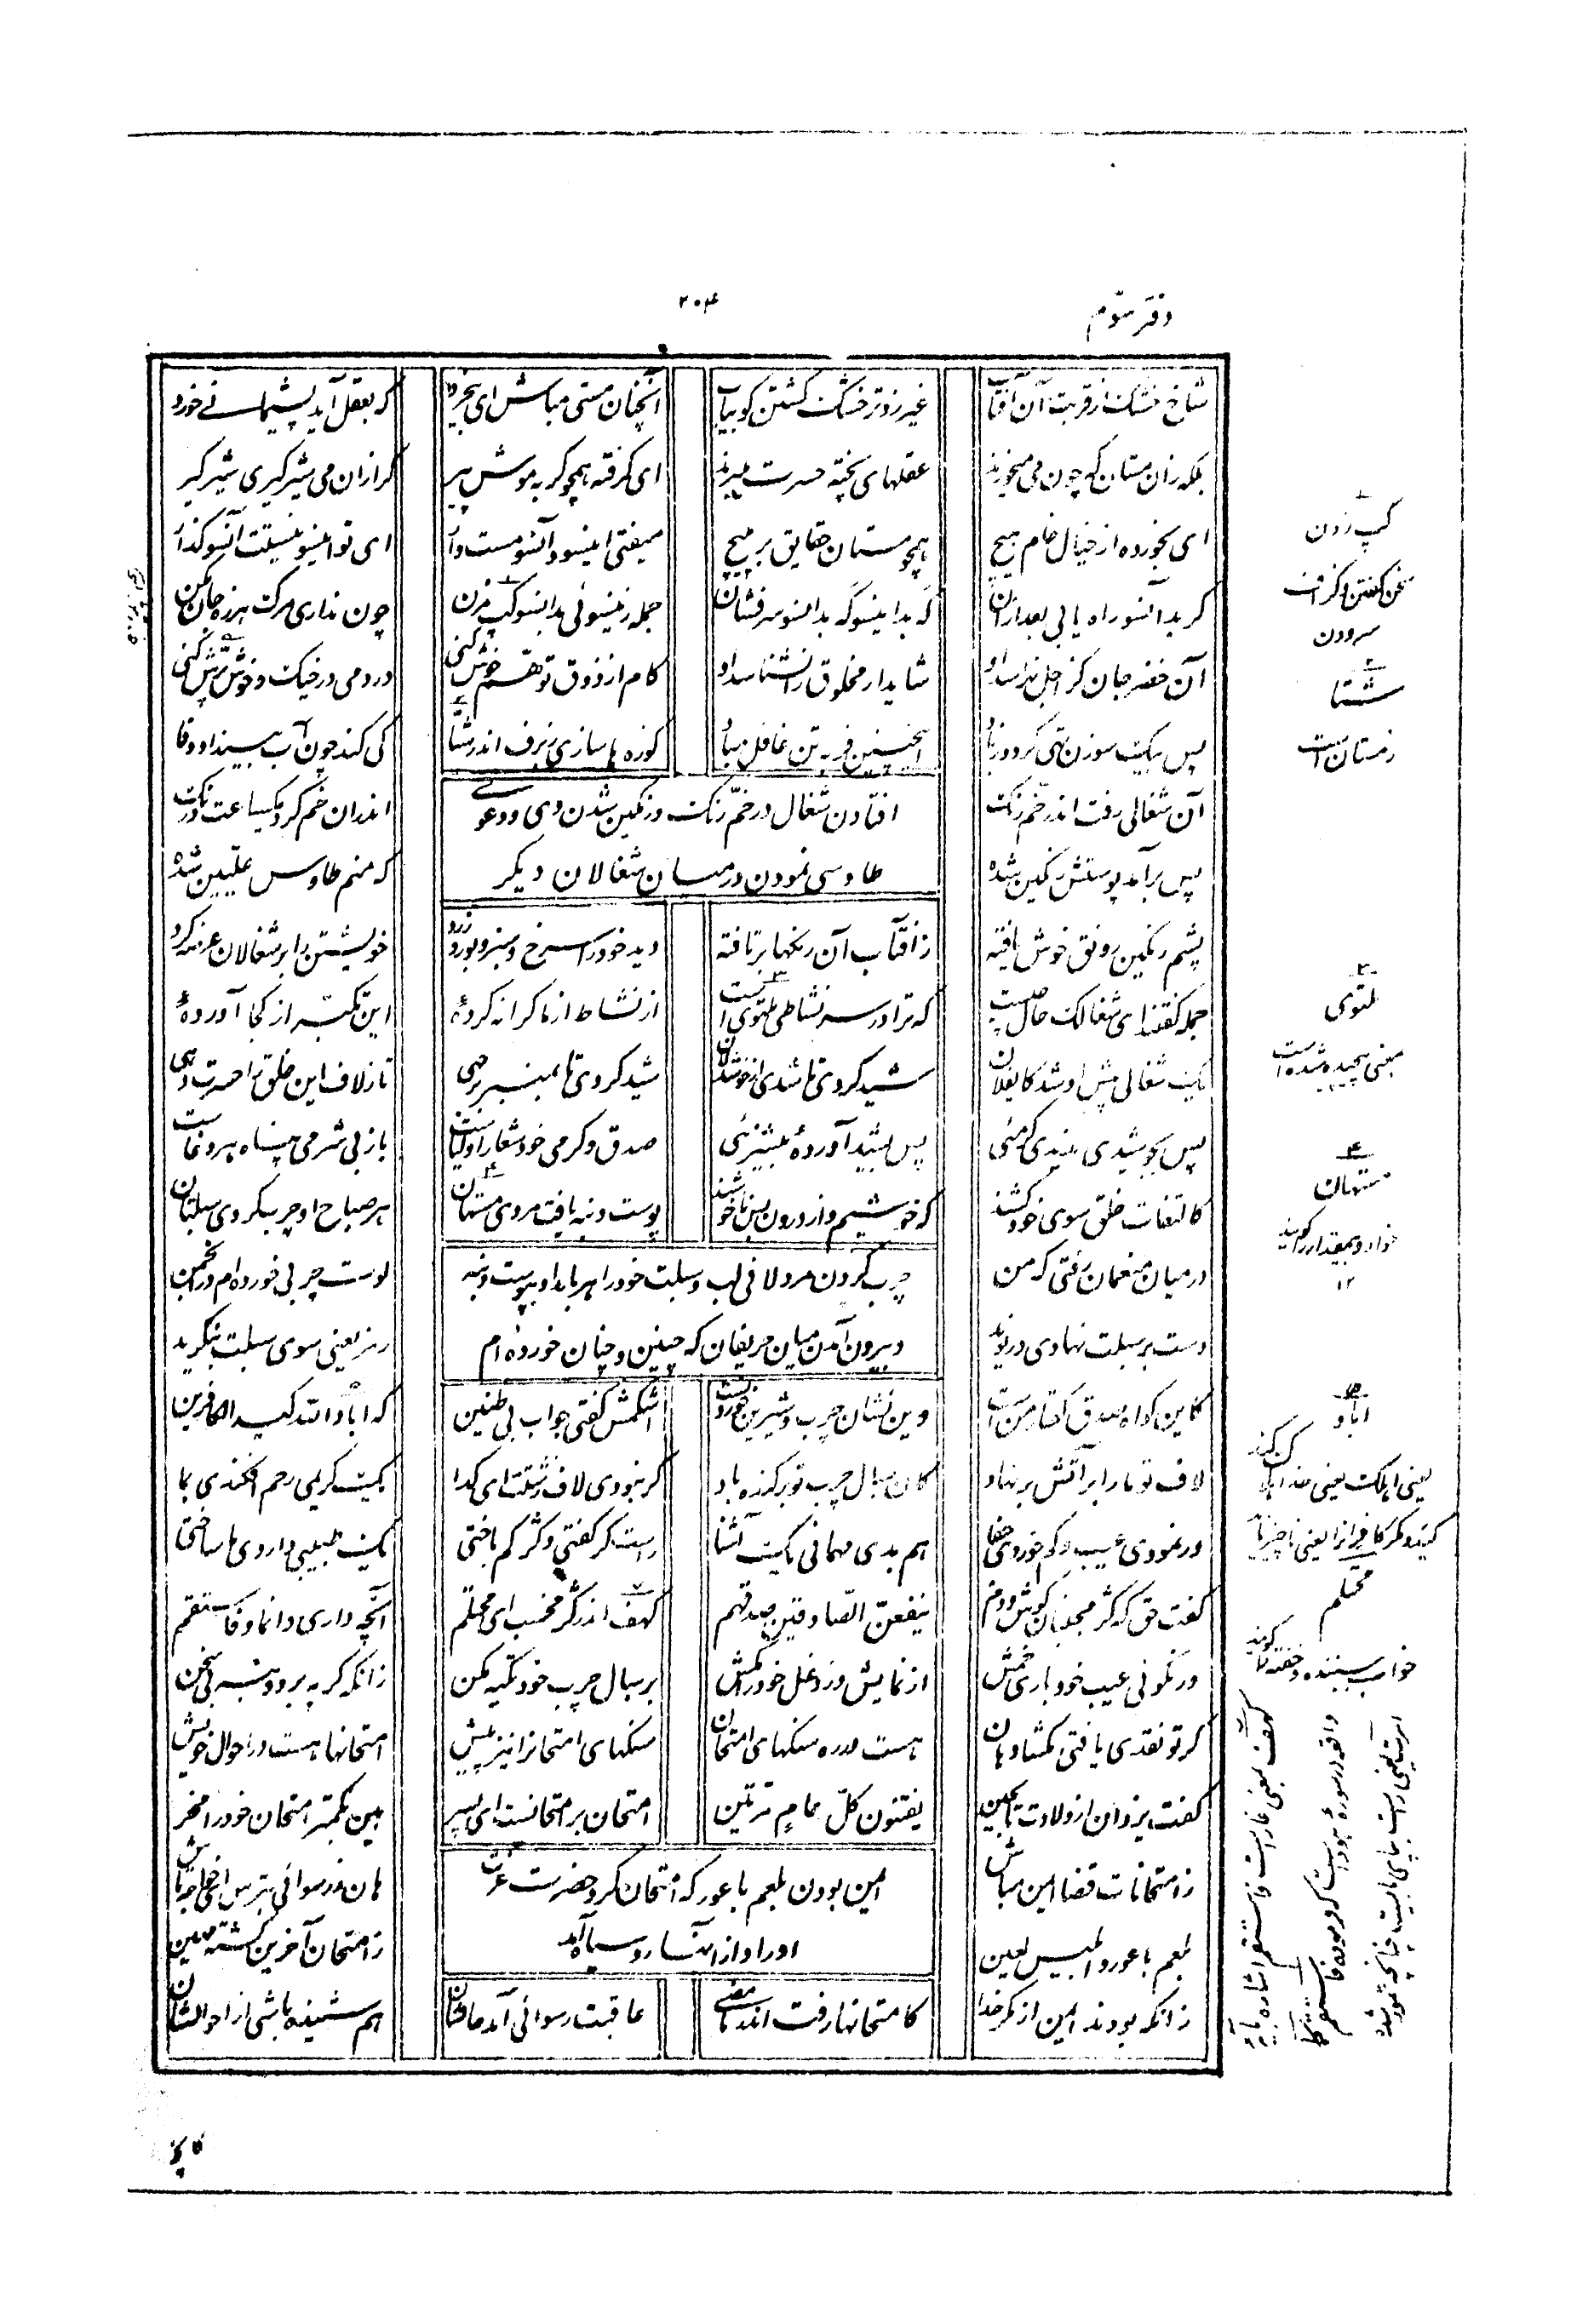 دفتر سوّم
۲۰۴
شاخ خشک از قربت آن آفتاب غیر زوتر خشک گشتن کو بیاب آنچنان مستی مباش ای بیخرد که بعقل آید پشیمانی خورد
بلکه زان مستان که چون می میخورند عقلهای پخته حسرت میبرند ای گرفته همچو گربه موش پیر گر ازان می شیرگیری شیر گیر
ای بخورده از خیال خام هیچ همچو مستان حقایق بر مپیچ میفتی اینسو و آنسو مست وار ای تو اینسو نیستت آنسو گذار
گر بدانسو راه یابی بعد ازان گه بداینسو گه بدانسو سر فشان جمله زینسوئی بدانسو کپ مزن چون نداری مرگ هرزه جان مکن
آن خضر جان کز اجل نهراسد او شاید ار مخلوق را نشناسد او کام از ذوق توهّم خوش کنی در دمی در خیک و خوش پرش کنی
پس بیک سوزن تهی گردد ز باد اینچنین فربه تن عاقل مباد کوزه ها سازی ز برف اندر شتا کی کند چون آب بیند او وفا
افتادن شغال در خمّ رنگ و رنگین شدن وی و دعوی
طاوسی نمودن در میان شغالان دیگر
آن شغالی رفت اندر خمّ رنگ اندران خم کرد یکساعت درنگ
پس برآمد پوستش رنگین شده که منم طاوس علّیین شده
پشم رنگین رونق خوش یافته ز آفتاب آن رنگها بر تافته دید خود را سرخ و سبز و بور و زرد خویشتن را بر شغالان عرضه کرد
جمله گفتند ای شغالک حال چیست که ترا در سر نشاطی ملتوی است از نشاط از ما کرانه کردۀ این تکبّر از کجا آوردۀ
یک شغالی پیش او شد کای فلان شید کردی تا شدی از خوشدلان شید کردی تا بمنبر بر جهی تا ز لاف این خلق را حسرت دهی
پس بجوشیدی ندیدی گرمئی پس بشید آوردۀ بیشرمئی صدق و گرمی خود شعار اولیاست باز بی شرمی پناه هر دغاست
کالتفات خلق سوی خود کشند که خوشیم و از درون بس ناخوشند پوست دنبه یافت مردی مستهان هر صباح او چرب کردی سبلتان
چرب کردن مرد لافی لب و سبلت خود را هر بامداد بپوست دنبه
و بیرون آمدن میان حریفان که چنین و چنان خورده ام
در میان منعمان رفتی که من لوت چربی خورده ام در انجمن
دست بر سبلت نهادی در نوید رمز یعنی سوی سبلت بنگرید
کاین گواه صدق گفتار من است وین نشان چرب و شیرین خوردنست اشکمش گفتی جواب بی طنین که اباد الله کید الکافرین
لاف تو ما را بر آتش بر نهاد کان سبال چرب تو بر کنده باد گر نبودی لاف زشتت ای گدا یک کریمی رحم افکندی بما
ور نمودی عیب و کم خوردی جفا هم بدی مهمانی یک آشنا راست گر گفتی و کژ کم باختی یک طبیبی داروی ما ساختی
گفت حق که کژ مجنبان گوش و دم ینفعنّ الصّادقین صدقهم کهف اندر کژ مخسب ای محتلم آنچه داری وا نما و فاستقم
ور نگوئی عیب خود باری خمش از نمایش وز دغل خود را مکش بر سبال چرب خود تکیه مکن زانکه گربه برد دنبه بی سخن
گر تو نقدی یافتی مگشا دهان هست در ره سنگهای امتحان سنگهای امتحان را نیز پیش امتحانها هست در احوال خویش
گفت یزدان از ولادت تا بحین یفتنون کلّ عام مرّتین امتحان بر امتحانست ای پسر هین بکمتر امتحان خود را مخر
امین بودن بلعم باعور که امتحان کرد حضرت عزت
او را و از آنها رو سیاه آمد
ز امتحانات قضا ایمن مباش هان ز رسوائی بترس ای خواجه تاش
بلعم باعور و ابلیس لعین ز امتحان آخرین گشته مهین
زانکه بودند ایمن از مکر خدا کامتحانها رفت اندر ما مضی عاقبت رسوائی آمد حالشان هم شنیده باشی از احوالشان
۱
کپ زدن
سخن گفتن و گزاف
سرودن
۲
شتا
زمستان است
۳
ملتوی
بمعنی پیچیده شده است
۴
مستهان
خوار و بیمقدار را گویند
۱۲
۵
اباد
یعنی اهلک یعنی خدا هلاک کند
کید و مکر کافران را
محتلم
خواب بیننده و خفته را گویند
کهف بمعنی غار است فاستقم اشاره بآیۀ
واقعه در سورۀ هود است که فرموده فاستقم کما
امرت